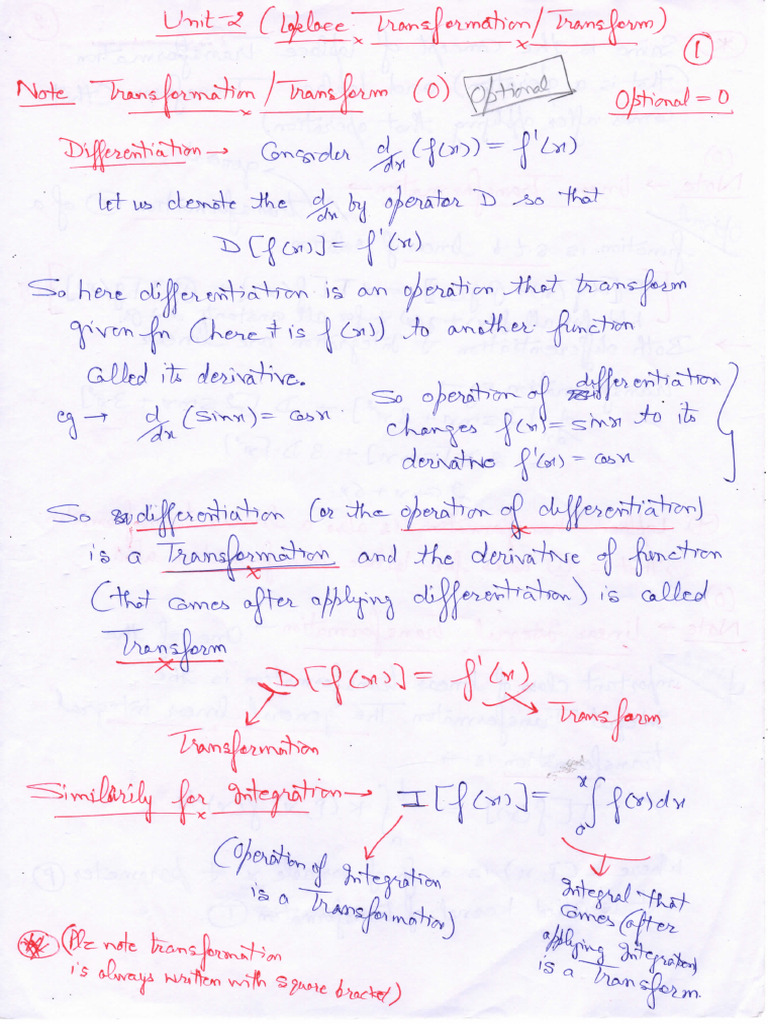 Unit-2 (Laplace Transformation/Transform)
1
Note Transformation/Transform (O) Optional
Optional = O
Differentiation → Consider d/dx (f(x)) = f'(x)
let us denote the d/dx by operator D so that
D[f(x)] = f'(x)
So here differentiation is an operation that transform
given fn (here it is f(x)) to another function
called its derivative.
eg → d/dx (sinx) = cosx
So operation of differentiation
changes f(x) = sinx to its
derivative f'(x) = cosx
So differentiation (or the operation of differentiation)
is a Transformation and the derivative of function
(that comes after applying differentiation) is called
Transform
D[f(x)] = f'(x)
Transform
Transformation
Similarily for Integration → I[f(x)] = ∫ₐˣ f(x)dx
(Operation of Integration
is a Transformation)
Integral that
comes (after
applying Integration)
is a Transform.
(Plz note transformation
is always written with square bracket)